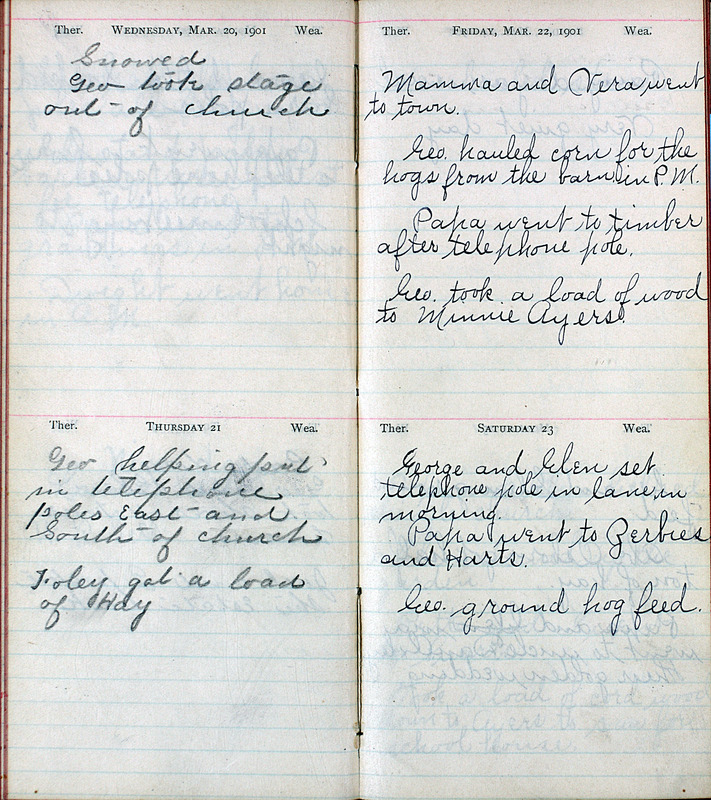 Ther. WEDNESDAY, MAR. 20, 1901 Wea.
Snowed
Geo took stage
out of church
Ther. THURSDAY 21 Wea.
Geo helping put
in telephone
poles East and
South of church
Foley got a load
of Hay
Ther. FRIDAY, MAR. 22, 1901 Wea.
Mamma and Vera went
to town.
Geo. hauled corn for the
hogs from the barn in P.M.
Papa went to timber
after telephone pole.
Geo. took a load of wood
to Minnie Ayers.
Ther. SATURDAY 23 Wea.
George and Glen set
telephone pole in lane in
morning.
Papa went to Zerbies
and Harts.
Geo. ground hog feed.